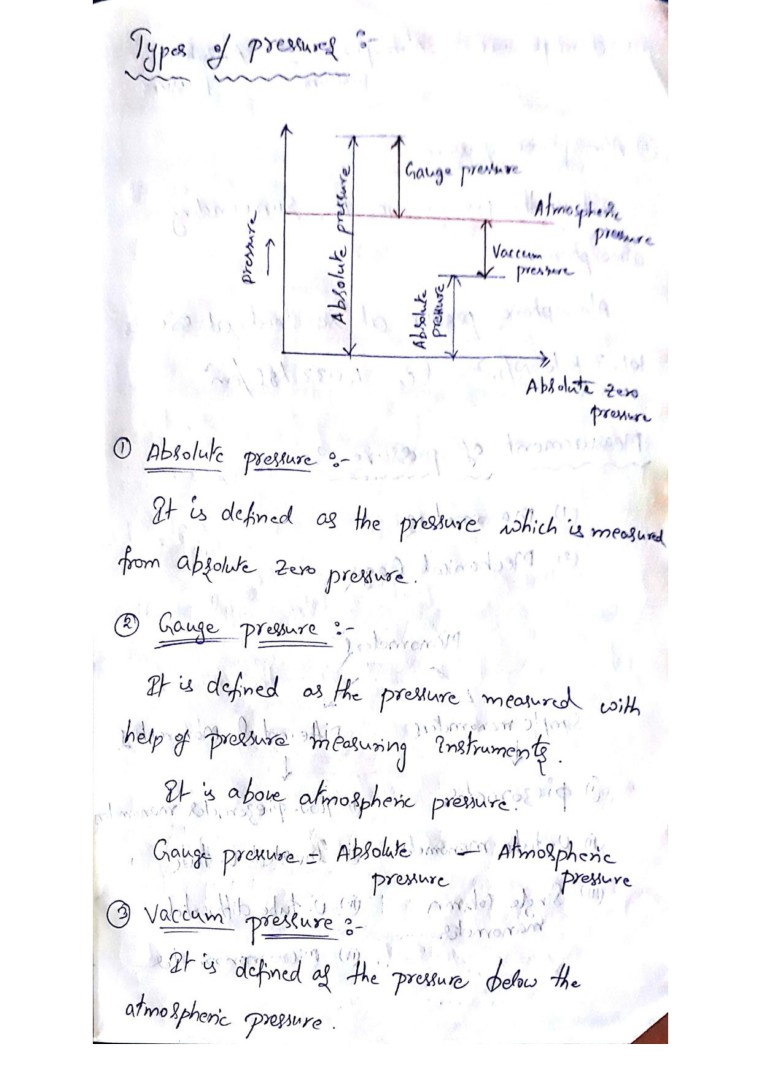 Types of pressures :-
Gauge pressure
Atmospheric
pressure
Vaccum
pressure
pressure
Absolute pressure
Absolute
pressure
Absolute zero
pressure
① Absolute pressure :-
It is defined as the pressure which is measured
from absolute zero pressure.
② Gauge pressure :-
It is defined as the pressure measured with
help of pressure measuring Instruments.
It is above atmospheric pressure.
Gauge pressure = Absolute — Atmospheric
pressure pressure
③ Vaccum pressure :-
It is defined as the pressure below the
atmospheric pressure.